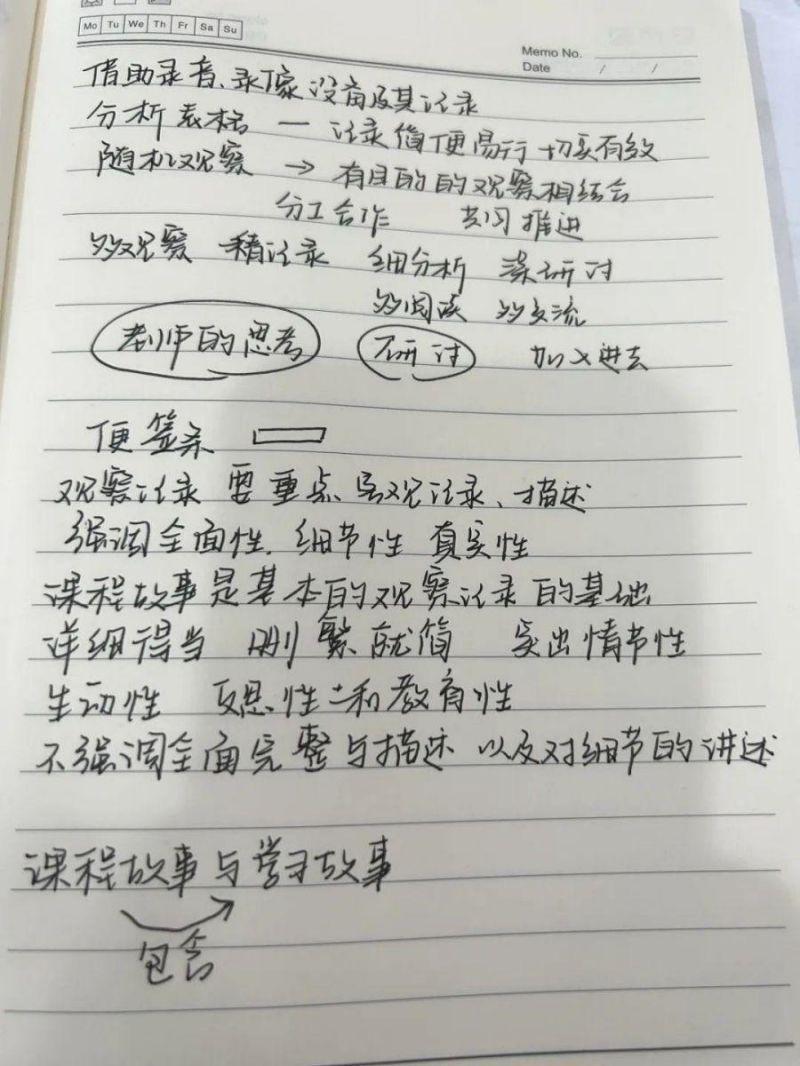 Mo Tu We Th Fr Sa Su
Memo No.
Date / /
借助录音、录像设备及其记录
分析表格 — 记录简便易行 切实有效
随机观察 → 有目的的观察相结合
分工合作 共同推进
多观察 精记录 细分析 深研讨
多阅读 多交流
老师的思考 研讨 加入进去
便签条
观察记录 要重点客观记录、描述
强调全面性. 细节性 真实性
课程故事是基本的观察记录的基础
详细得当 删繁就简 突出情节性
生动性 反思性和教育性
不强调全面完整与描述 以及对细节的讲述
课程故事与学习故事
包含